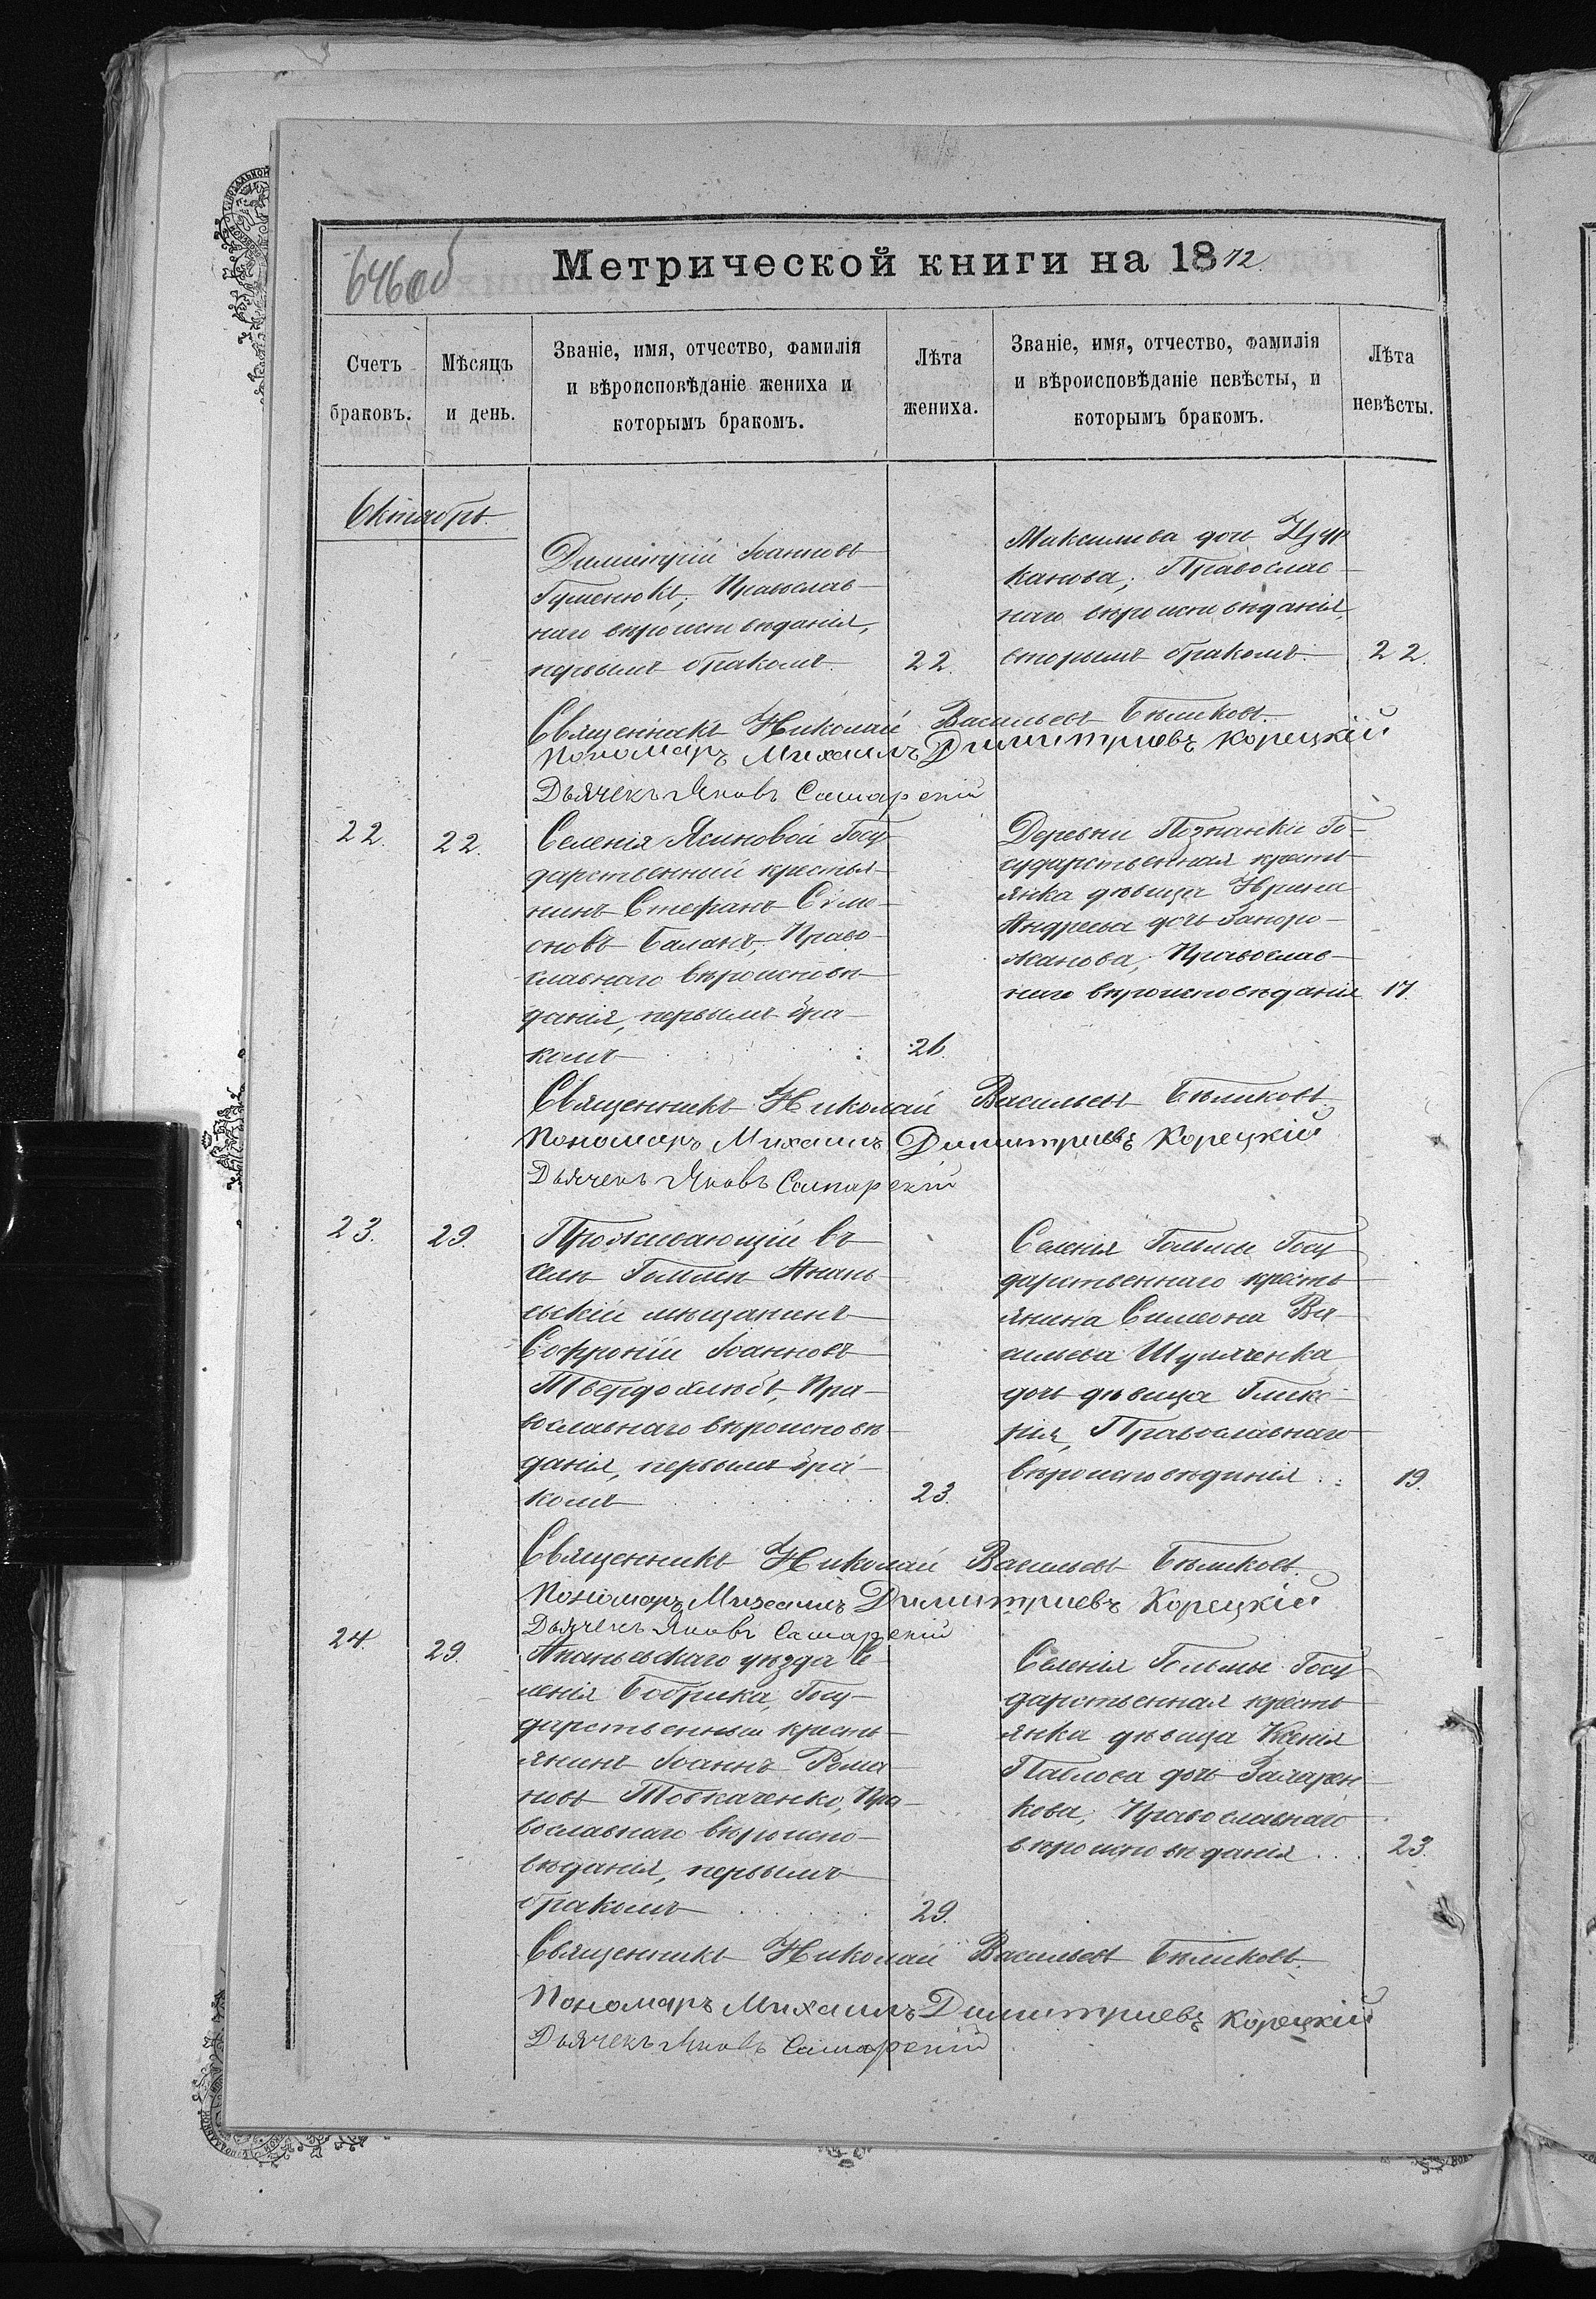 646об
Метрической книги на 1872.
Счетъ браковъ.
Мѣсяцъ и день.
Званіе, имя, отчество, фамилія
и вѣроисповѣданіе жениха и
которымъ бракомъ.
Лѣта жениха.
Званіе, имя, отчество, фамилія
и вѣроисповѣданіе невѣсты, и
которымъ бракомъ.
Лѣта невѣсты.
Октябрь.
Димитрій Іоанновъ
Гуменюкъ, Православ-
наго вѣроисповѣданія,
первымъ бракомъ. 22.
Максимова дочь Цур
канова, Православ-
наго вѣроисповѣданія,
вторымъ бракомъ. 22.
Священникъ Николай Васильевъ Бѣликовъ.
Пономаръ Михаилъ Димитриевъ Корецкій
Дьячекъ Яковъ Самарскій
22. 22.
Селенія Ясиновой Госу
дарственный крестья-
нинъ Стефанъ Симе-
оновъ Баланъ, Право-
славнаго вѣроисповѣ-
данія, первымъ бра-
комъ 26.
Деревни Познанки Го-
сударственная кресть
янка дѣвица Ирина
Андреева дочь Запоро-
жанова, Православ-
наго вѣроисповѣданія 17.
Священникъ Николай Васильевъ Бѣликовъ
Пономаръ Михаилъ Димитриевъ Корецкій
Дьячекъ Яковъ Самарскій
23. 29.
Проживающій въ
селѣ Гольмѣ Анань
евскій мѣщанинъ
Софроній Іоанновъ
Твердохлѣбъ, Пра-
вославнаго вѣроисповѣ
данія, первымъ бра-
комъ 23.
Селенія Гольмы Госу
дарственнаго кресть
янина Симеона Ва-
сильева Шуляченка
дочь дѣвица Глике-
рія, Православнаго
вѣроисповѣданія 19.
Священникъ Николай Васильевъ Бѣликовъ.
Пономаръ Михаилъ Димитриевъ Корецкій
Дьячекъ Яковъ Самарскій
24. 29.
Ананьевскаго уѣзда се
ленія Бобрика, Госу-
дарственный кресть
янинъ Іоаннъ Рома-
новъ Товкаченко, Пра-
вославнаго вѣроиспо-
вѣданія, первымъ
бракомъ 29.
Селенія Гольмы Госу
дарственная кресть
янка дѣвица Ксенія
Павлова дочь
кова, Православнаго
вѣроисповѣданія 23.
Священникъ Николай Васильевъ Бѣликовъ.
Пономаръ Михаилъ Димитриевъ Корецкій
Дьячекъ Яковъ Самарскій